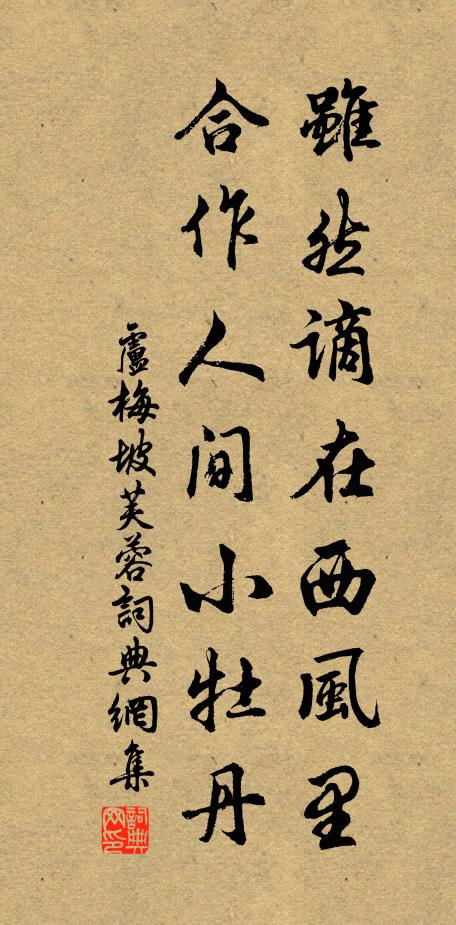 雖然謫在西風里
合作人间小牡丹
盧梅坡芙蓉詞典網集
詞典网印